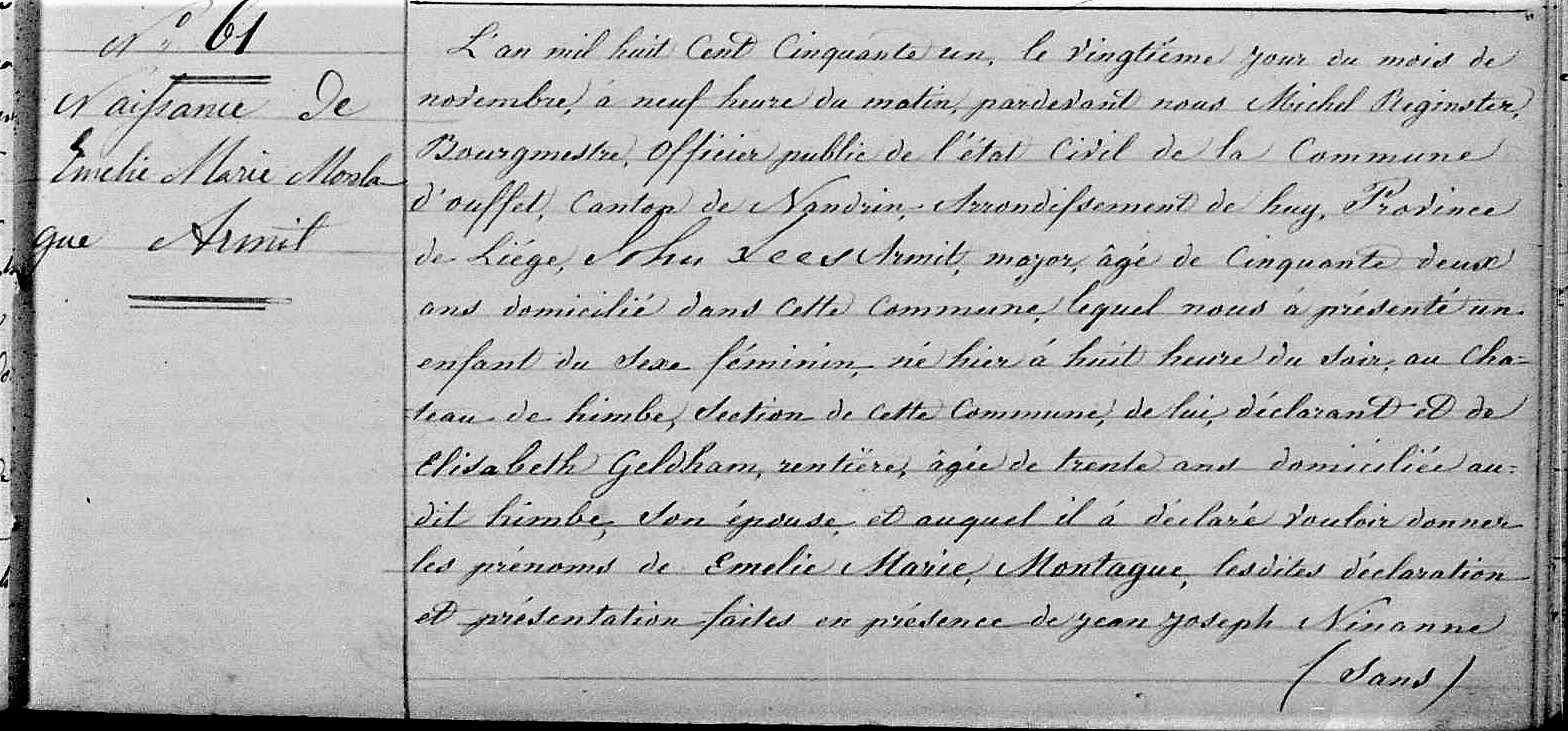 N° 61
Naissance De
Emelie Marie Monta
gue Armit
L'an mil huit Cent Cinquante un, le vingtième jour du mois de
novembre, à neuf heure du matin, pardevant nous Michel Reginster,
Bourgmestre, Officier public de l'état Civil de la Commune
d'ouffet, Canton de Nandrin, Arrondissement de huy, Province
de Liége, John Lees Armit, major, âgé de Cinquante deux
ans domicilié dans cette Commune, lequel nous à présenté un
enfant du sexe féminin, né hier à huit heure du soir, au Cha=
teau de himbe, Section de cette Commune, de lui, déclarant et de
Elisabeth Geldham, rentière, âgée de trente ans domiciliée au=
dit himbe, son épouse, et auquel il à déclaré vouloir donner
les prénoms de Emelie Marie, Montague, lesdites déclaration
et présentation faites en présence de jean joseph Ninanne
(Sans)